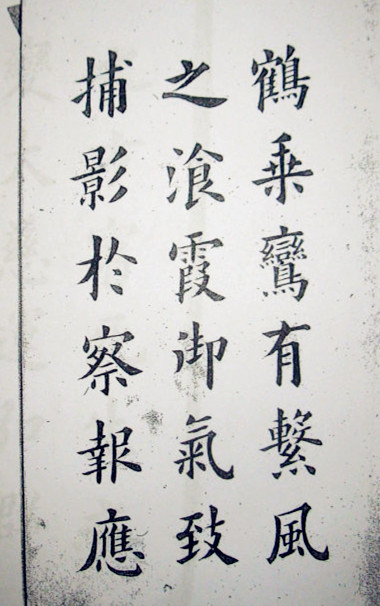 鶴乗鸞有繋風
之飡霞御氣致
捕影於察報應